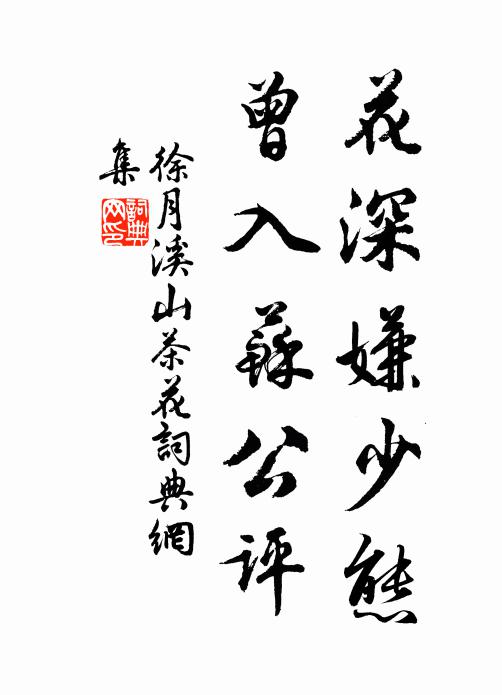 花深嫌少態
曾入蘇公評
徐月溪山茶花詞典網
集
詞典
网印